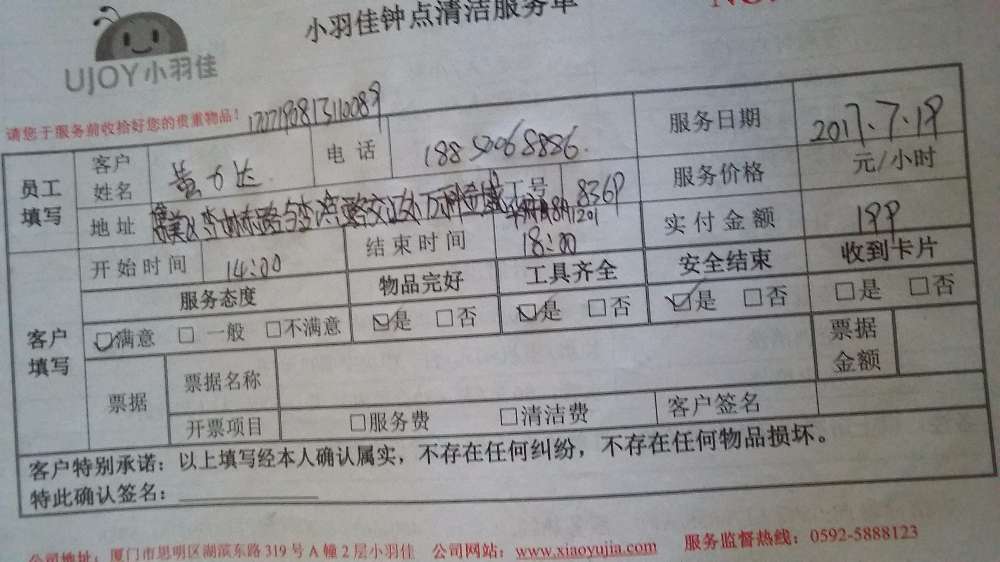 小羽佳钟点清洁服务单
NO
UJOY小羽佳
请您于服务前收拾好您的贵重物品！
员工填写 客户姓名 黄 达 电话 18850068886 服务日期 2017.7.19
服务价格 元/小时
地址 集美区 东路与 路交 万科 工号 8369 实付金额 199
客户填写 开始时间 14:00 结束时间 18:00
服务态度 物品完好 工具齐全 安全结束 收到卡片
☑满意 □一般 □不满意 ☑是 □否 ☑是 □否 ☑是 □否 □是 □否
票据 票据名称 票据金额
开票项目 □服务费 □清洁费 客户签名
客户特别承诺：以上填写经本人确认属实，不存在任何纠纷，不存在任何物品损坏。
特此确认签名：
公司地址：厦门市思明区湖滨东路319号A幢2层小羽佳 公司网站：www.xiaoyujia.com 服务监督热线：0592-5888123